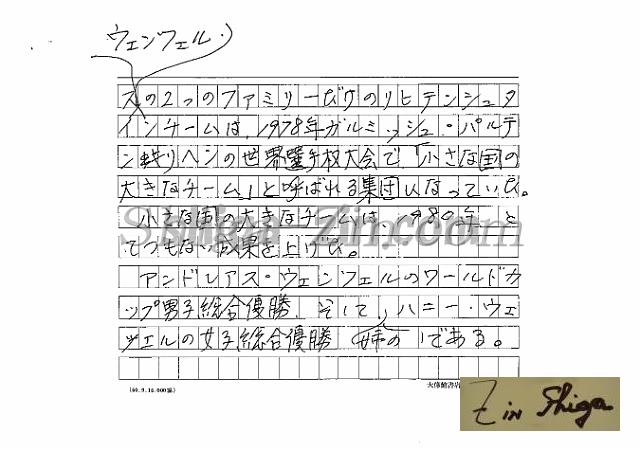 ウェンツェル・
スの2つのファミリーだけのリヒテンシュタ
インチームは、1978年ガルミッシュ・パルテ
ンキリヘンの世界選手権大会で「小さな国の
大きなチーム」と呼ばれる集団になっていた。
小さな国の大きなチームは、1980年、と
てつもない成果を上げた。
アンドレアス・ウェンツェルのワールドカ
ップ男子総合優勝、そして、ハニー・ウェ
ツェルの女子総合優勝
姉の
である。
(60.9.10.000冊)
大修館書店
Shiga-Zin.com
Z in Shiga